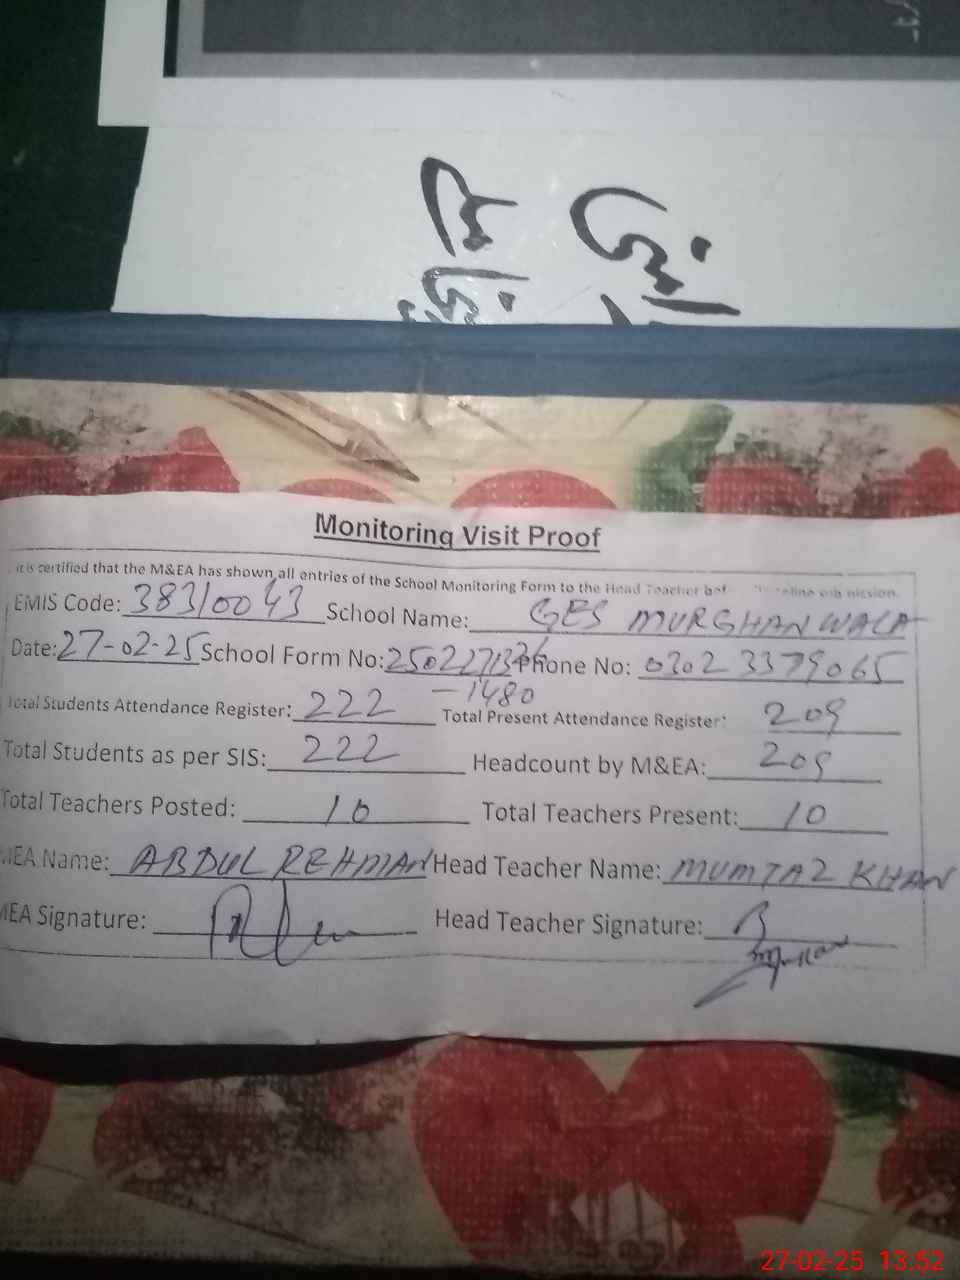 Monitoring Visit Proof
it is certified that the M&EA has shown all entries of the School Monitoring Form to the Head Teacher
EMIS Code: 38310043 School Name: GES MURGHANWALA
Date: 27-02-25 School Form No: Phone No: 0302 3379065
-1480
Total Students Attendance Register: 222 Total Present Attendance Register: 209
Total Students as per SIS: 222 Headcount by M&EA: 209
Total Teachers Posted: 10 Total Teachers Present: 10
MEA Name: ABDUL REHMAN Head Teacher Name: MUMTAZ KHAN
MEA Signature: Head Teacher Signature:
27-02-25 13:52